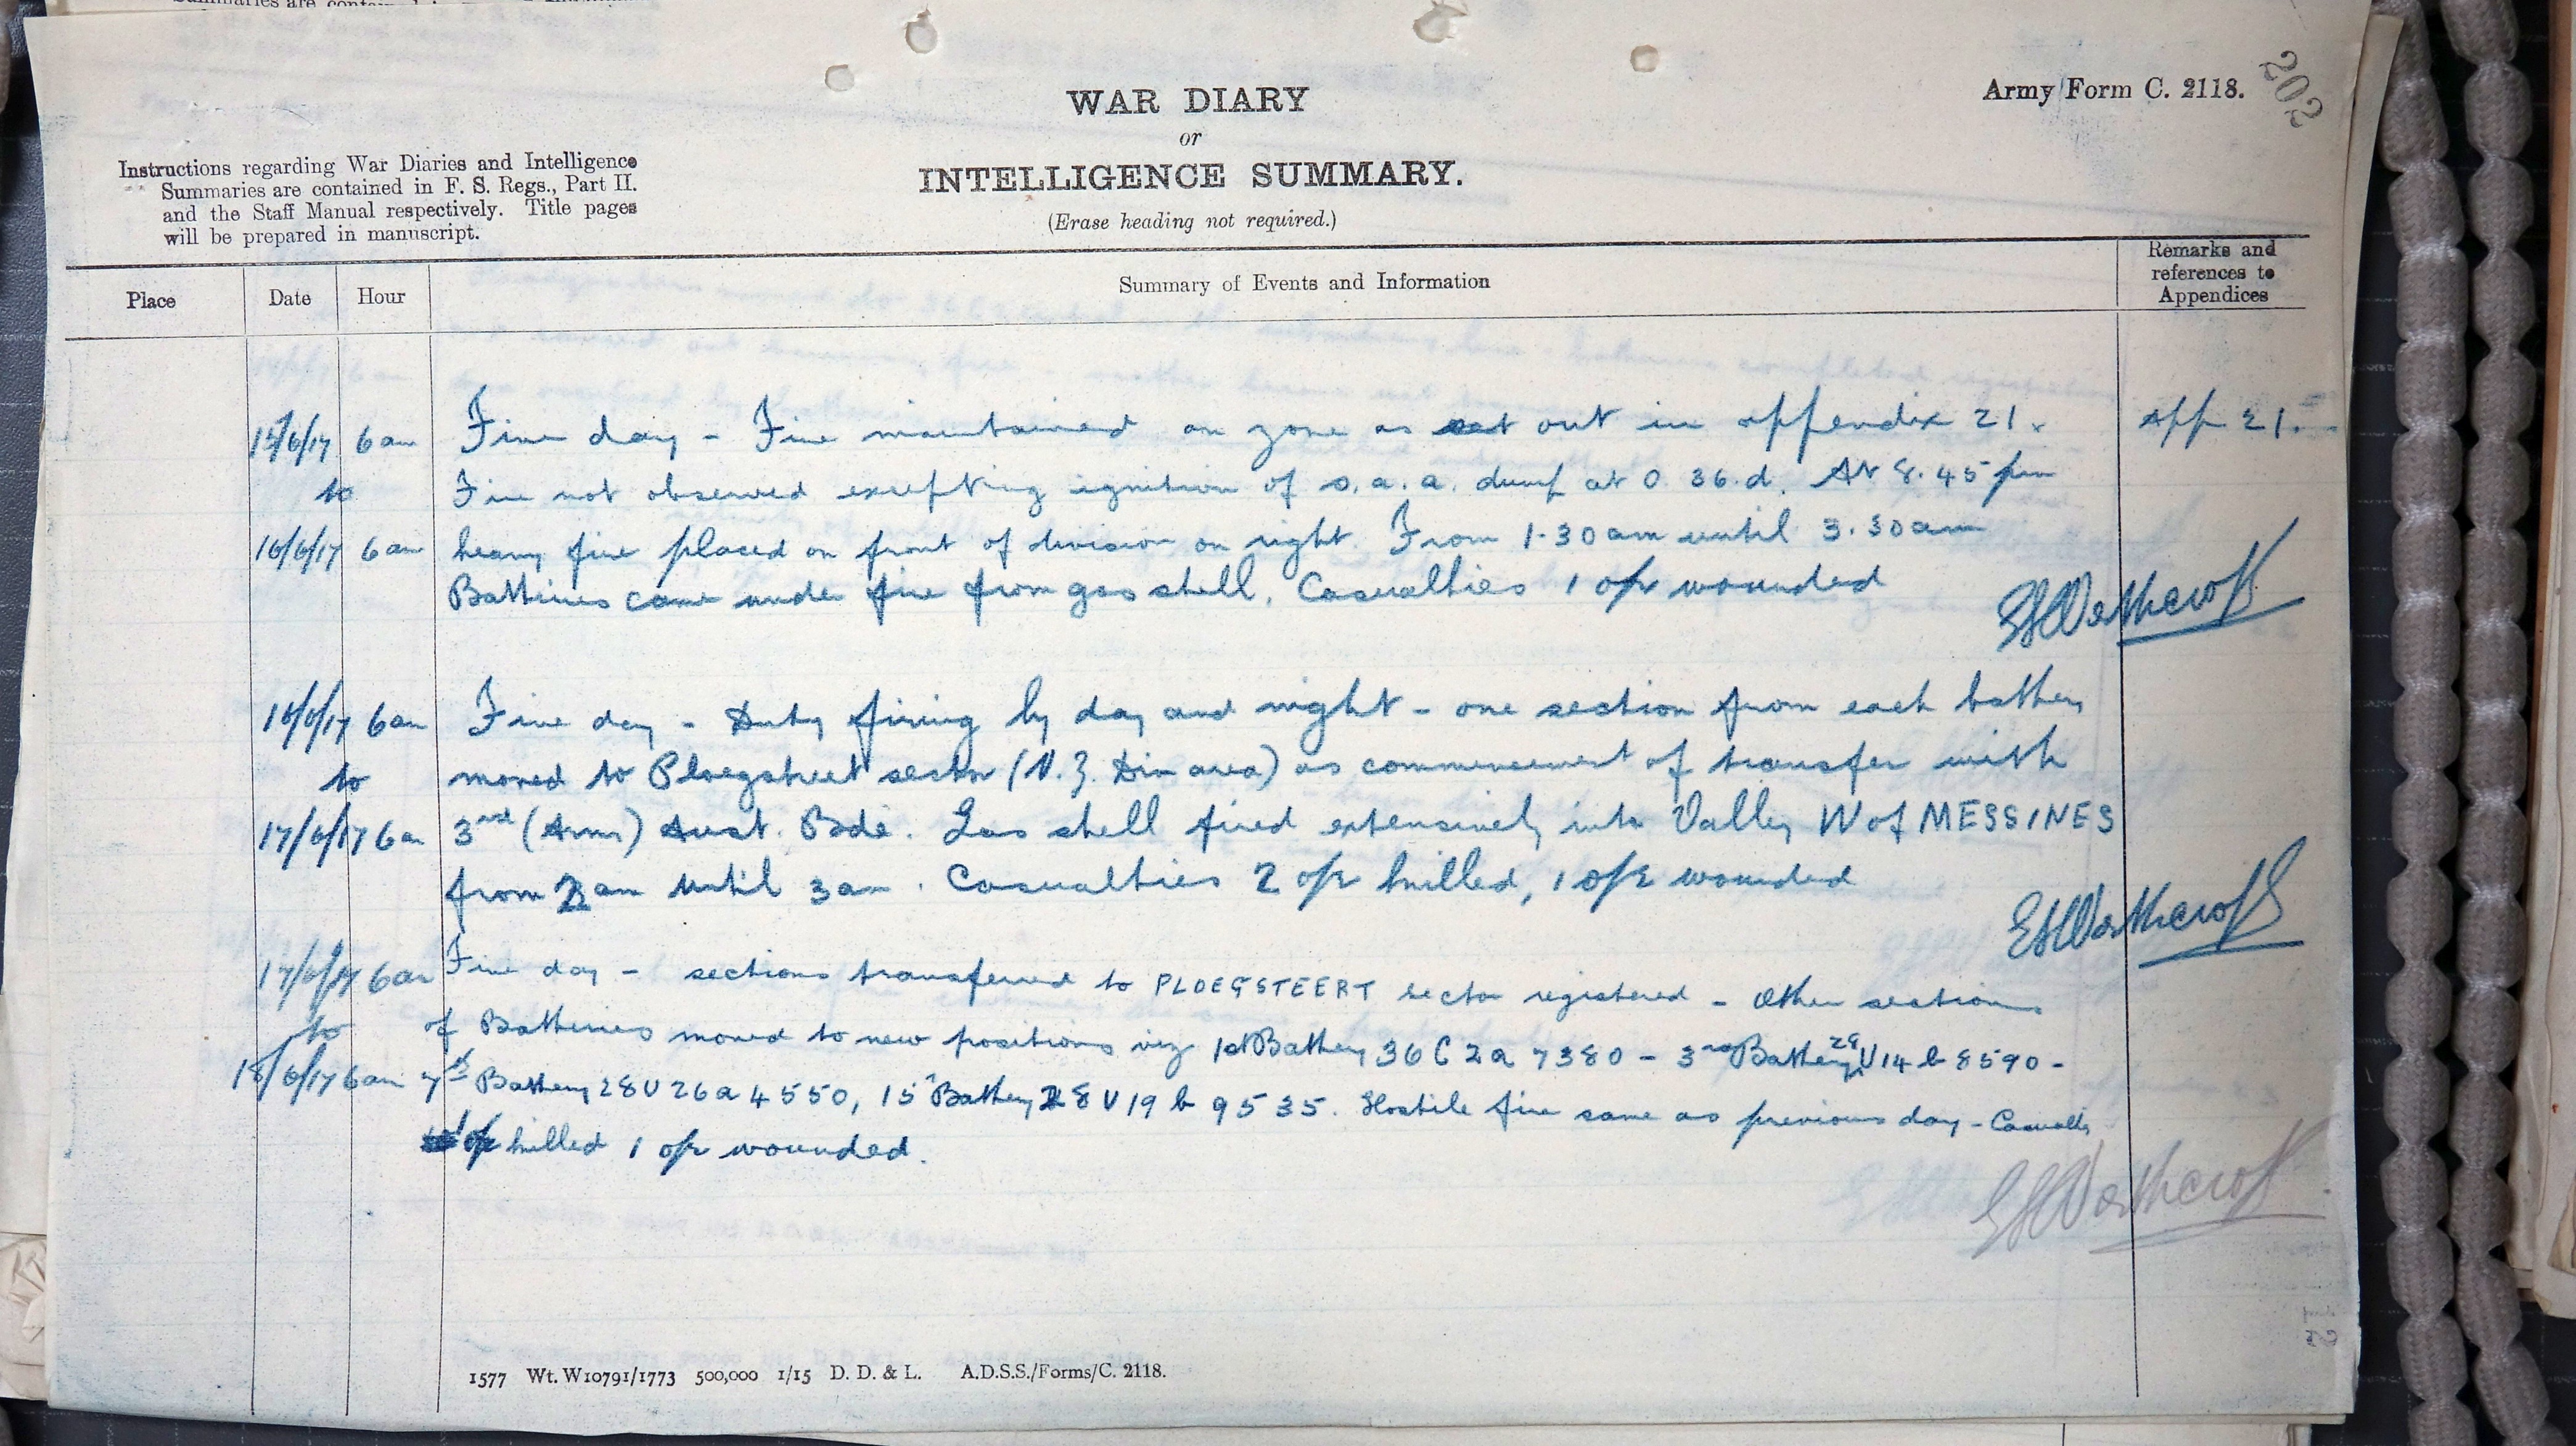 Army Form C. 2118.
202
WAR DIARY
or
INTELLIGENCE SUMMARY.
(Erase heading not required.)
Instructions regarding War Diaries and Intelligence
Summaries are contained in F. S. Regs., Part II.
and the Staff Manual respectively. Title pages
will be prepared in manuscript.
Place Date Hour Summary of Events and Information Remarks and references to Appendices
15/6/17 6 am Fine day - Fire maintained on zone as set out in appendix 21. App 21.
to Fire not observed excepting ignition of s.a.a. dump at O 36.d. At 8.45 pm
16/6/17 6 am heavy fire placed on front of division on right. From 1.30 am until 3.30 am
Batteries came under fire from gas shell. Casualties 1 o/r wounded
16/6/17 6 am Fine day - Duty firing by day and night - one section from each battery
to moved to Ploegstreet sector (N.Z. Div area) as commencement of transfer with
17/6/17 6 am 3rd (Army) Aust. Bde. Gas shell fired extensively into Valley W of MESSINES
from 2 am until 3 am. Casualties 2 o/r killed, 1 o/r wounded
17/6/17 6 am Fine day - sections transferred to PLOEGSTEERT sector registered - Other sections
to of Batteries moved to new positions viz 1st Battery 36 C 2 a 7380 - 3rd Battery 28 U 14 b 8590 -
18/6/17 6 am 7th Battery 28 U 26 a 4550, 15 Battery 28 U 19 b 9535. Hostile fire same as previous day - Casualty
1 o/r killed 1 o/r wounded.
1577 Wt. W10791/1773 500,000 1/15 D. D. & L. A.D.S.S./Forms/C. 2118.